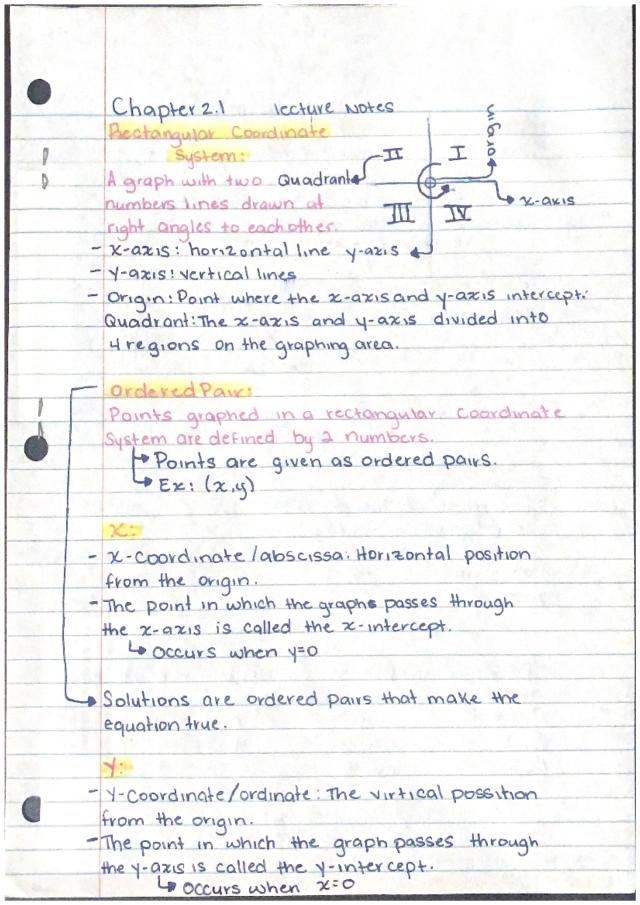 Chapter 2.1 lecture Notes
Rectangular Coordinate
System:
A graph with two
numbers lines drawn at
right angles to each other.
Quadrant
II
I
III
IV
origin
x-axis
y-axis
- x-axis: horizontal line
- Y-axis: vertical lines
- Origin: Point where the x-axis and y-axis intercept.
Quadrant: The x-axis and y-axis divided into
4 regions on the graphing area.
Ordered Pair:
Points graphed in a rectangular Coordinate
System are defined by 2 numbers.
↳ Points are given as ordered pairs.
↳ Ex: (x,y)
x:
- x-coordinate/abscissa: Horizontal position
from the origin.
- The point in which the graphs passes through
the x-axis is called the x-intercept.
↳ occurs when y=0
→ Solutions are ordered pairs that make the
equation true.
Y:
- Y-Coordinate/ordinate: The virtical possition
from the origin.
- The point in which the graph passes through
the y-axis is called the y-intercept.
↳ occurs when x=0